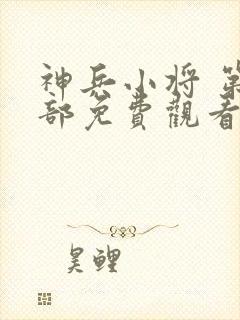 神兵小将 第
部免費觀看
昊鲤